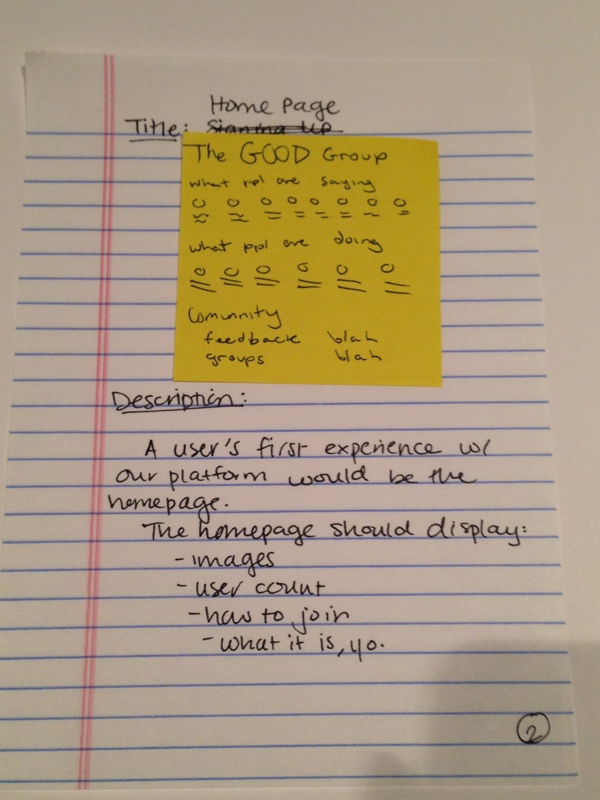 Home Page
Title: Signing Up
The GOOD Group
what ppl are saying
what ppl are doing
Comunnity
feedback blah
groups blah
Description:
A user's first experience w/
our platform would be the
homepage.
The homepage should display:
- images
- user count
- how to join
- what it is, yo.
2